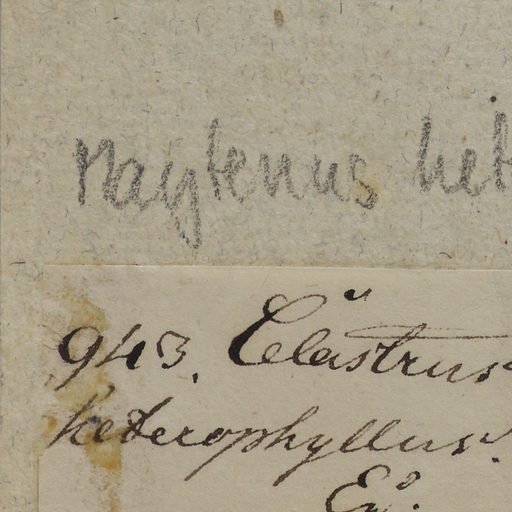 Maytenus het
943. Celastrus
heterophyllus.